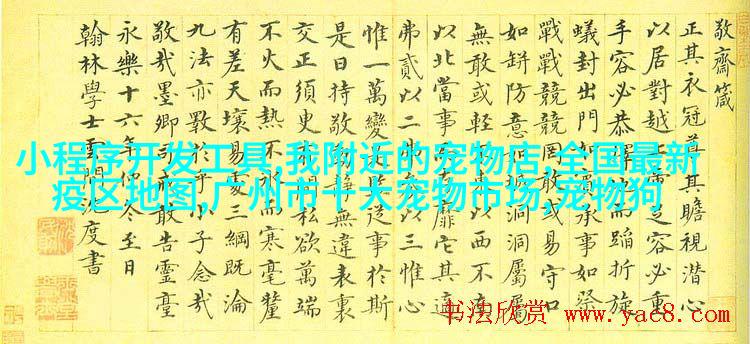 敬齋箴
正其衣冠其瞻視潛心
以居對越足容必重
手容必恭而蹈折旋
蟻封出門如承事如祭
戰戰兢兢罔敢或易守口
如缾防意如洞洞屬屬
無敢或輕以西不南
以北當事靡它其適
弗貳以二以三惟心
惟一萬變從事於斯
是曰持敬靜無違表裏
交正須臾私欲萬端
不火而熱不而寒毫釐
有差天壤易處三綱既淪
九法亦斁於乎小子念哉
敬哉墨卿司戒敢告靈臺
永樂十六年仲冬至日
翰林學士雲間沈度書
小程序开发工具,我附近的宠物店,全国最新
疫区地图,广州市十大宠物市场,宠物狗
书法欣赏
www.yac8.com